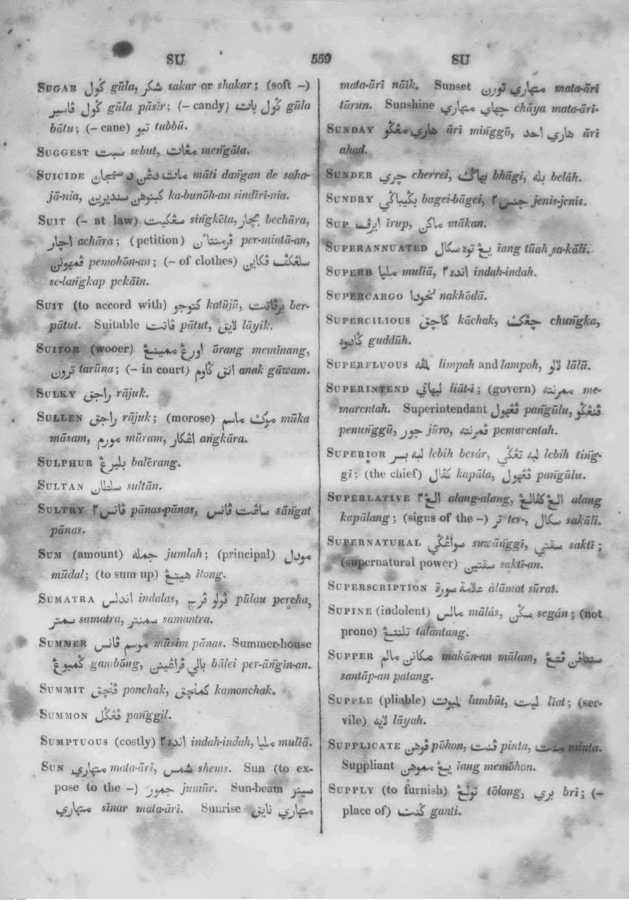 SU 559 SU
SUGAR گول gūla, شكر sakar or shakar; (soft –)
گول ڤاسير gūla pāsir; (– candy) گول باتو gūla
bātu; (– cane) تبو tubbū.
SUGGEST سبت sebut, مڠات mengāta.
SUICIDE māti dangan de saha-
jā-nia, ka-bunōh-an sindīri-nia.
SUIT (– at law) سڠكيت singkēta, بچار bechāra,
اچار achāra; (petition) per-mintā-an,
pemohōn-an; (– of clothes)
se-langkap pekāin.
SUIT (to accord with) كتوجو katūjū, ber-
pātut. Suitable ڤاتت pātut, لايق lāyik.
SUITOR (wooer) اورڠ ممينڠ ōrang memīnang,
ترون tarūna; (– in court) انق ڬاوم anak gāwam.
SULKY راجق rājuk.
SULLEN راجق rājuk; (morose) موك ماسم mūka
māsam, مورم mūram, اڠكار angkāra.
SULPHUR بليرڠ balērang.
SULTAN سلطان sultān.
SULTRY ڤانس٢ pānas-pānas, ساڠت ڤانس sāngat
pānas.
SUM (amount) جمله jumlah; (principal) مودل
mūdal; (to sum up) هيتڠ ītong.
SUMATRA اندلس indalas, ڤولو ڤرچ pūlau percha,
سمتر samatra, سمنتر samantra.
SUMMER موسم ڤانس mūsim pānas. Summer-house
gambōng, بالي ڤراڠينن bālei per-āngin-an.
SUMMIT ڤنچق ponchak, كمنچق kamonchak.
SUMMON ڤڠݢل panggil.
SUMPTUOUS (costly) انده٢ indah-indah, مليا muliā.
SUN متهاري mata-āri, شمس shems. Sun (to ex-
pose to the –) جمور jumūr. Sun-beam سينر
متهاري sīnar mata-āri. Sunrise نايق متهاري
mata-āri nāik. Sunset متهاري تورن mata-āri
tūrun. Sunshine چهاي متهاري chāya mata-āri.
SUNDAY هاري مڠݢو āri minggō, هاري احد āri
ahad.
SUNDER چري cherrei, بهاݢي bhāgi, بله belāh.
SUNDRY bagei-bāgei, جنس٢ jenis-jenis.
SUP ايرڤ īrup, ماكن mākan.
SUPERANNUATED يڠ توه سكالي iang tūah sa-kāli.
SUPERB مليا muliā, انده٢ indah-indah.
SUPERCARGO نخودا nakhōdā.
SUPERCILIOUS كاچق kāchak, چڠك chungka,
ݢادوه guddūh.
SUPERFLUOUS limpah and lampoh, لالو lālū.
SUPERINTEND lïat-i; (govern) me-
marentah. Superintendant ڤڠهول pangūlu,
penunggū, جورو jūro, pemarentah.
SUPERIOR لبه بسر lebih besár, لبه تڠݢي lebih ting-
gi; (the chief) كڤال kapāla, ڤڠهول pangūlu.
SUPERLATIVE الڠ٢ alang-alang, الڠ كڤالڠ alang
kapālang; (signs of the –) تر ter-, سكالي sakāli.
SUPERNATURAL سواڠݢي suwānggi, سقتي sakti;
(supernatural power) سقتين sakti-an.
SUPERSCRIPTION علامة سورة ālāmat sūrat.
SUPINE (indolent) مالس mālas, سݢن segán; (not
prone) تلنتڠ talantang.
SUPPER ماكانن مالم makān-an mālam, سنتاڤن ڤتڠ
santāp-an patang.
SUPPLE (pliable) لمبوت lumbūt, ليت līat; (ser-
vile) لايه lāyah.
SUPPLICATE ڤوهن pōhon, ڤنت pinta, منت minta.
Suppliant يڠ مموهن iang memōhon.
SUPPLY (to furnish) تولڠ tōlong, بري brī; (–
place of) ݢنت ganti.